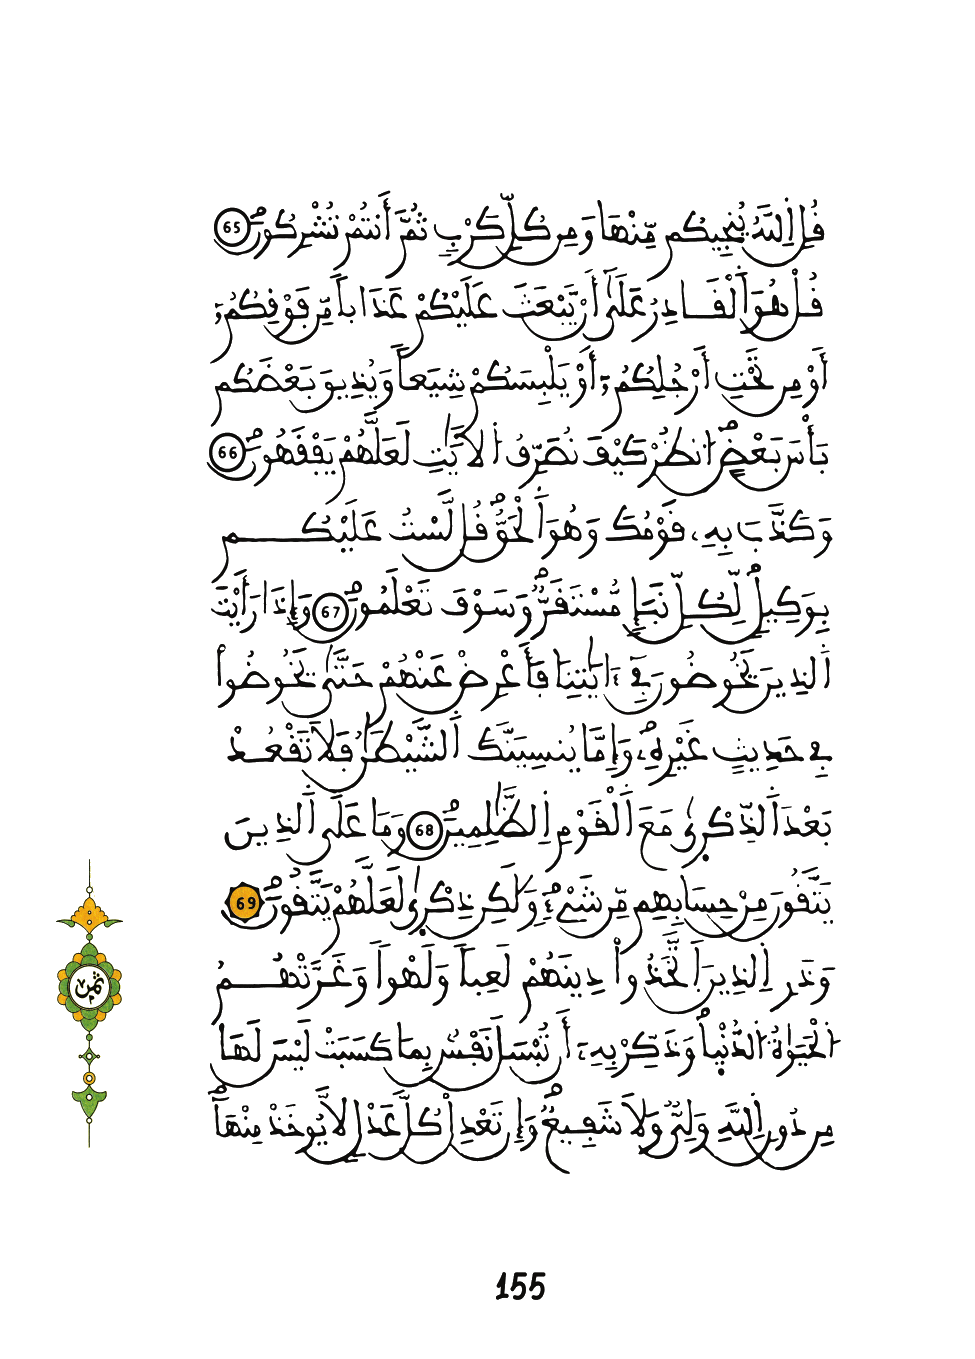 قُلِ اِ۬للَّهُ يُنجِيكُم مِّنْهَا وَمِن كُلِّ كَرْبٖ ثُمَّ أَنتُمْ تُشْرِكُونَۖ 65
قُلْ هُوَ اَ۬لْقَادِرُ عَلَىٰٓ أَنْ يَّبْعَثَ عَلَيْكُمْ عَذَاباٗ مِّن فَوْقِكُمُۥٓ
أَوْ مِن تَحْتِ أَرْجُلِكُمُۥٓ أَوْ يَلْبِسَكُمْ شِيَعاٗ وَيُذِيقَ بَعْضَكُم
بَأْسَ بَعْضٍۖ اُ۟نظُرْ كَيْفَ نُصَرِّفُ اُ۬لَايَٰتِ لَعَلَّهُمْ يَفْقَهُونَۖ 66
وَكَذَّبَ بِهِۦ قَوْمُكَ وَهُوَ اَ۬لْحَقُّۖ قُل لَّسْتُ عَلَيْكُم
بِوَكِيلٖۖ لِّكُلِّ نَبَإٖ مُّسْتَقَرّٞۖ وَسَوْفَ تَعْلَمُونَۖ 67 وَإِذَا رَأَيْتَ
اَ۬لذِينَ يَخُوضُونَ فِےٓ ءَايَٰتِنَا فَأَعْرِضْ عَنْهُمْ حَتَّىٰ يَخُوضُواْ
فِے حَدِيثٍ غَيْرِهِۦۖ وَإِمَّا يُنسِيَنَّكَ اَ۬لشَّيْطَٰنُ فَلَا تَقْعُدْ
بَعْدَ اَ۬لذِّكْر۪ىٰ مَعَ اَ۬لْقَوْمِ اِ۬لظَّٰلِمِينَۖ 68 وَمَا عَلَى اَ۬لذِينَ
يَتَّقُونَ مِنْ حِسَابِهِم مِّن شَےْءٖۖ وَلَٰكِن ذِكْر۪ىٰ لَعَلَّهُمْ يَتَّقُونَۖ 69
وَذَرِ اِ۬لذِينَ اَ۪تَّخَذُواْ دِينَهُمْ لَعِباٗ وَلَهْواٗ وَغَرَّتْهُمُ
اُ۬لْحَيَوٰةُ اُ۬لدُّنْي۪اۖ وَذَكِّرْ بِهِۦٓ أَن تُبْسَلَ نَفْسُۢ بِمَا كَسَبَتْ لَيْسَ لَهَا
مِن دُونِ اِ۬للَّهِ وَلِيّٞ وَلَا شَفِيعٞۖ وَإِن تَعْدِلْ كُلَّ عَدْلٖ لَّا يُوخَذْ مِنْهَآۖ
ثمن
155